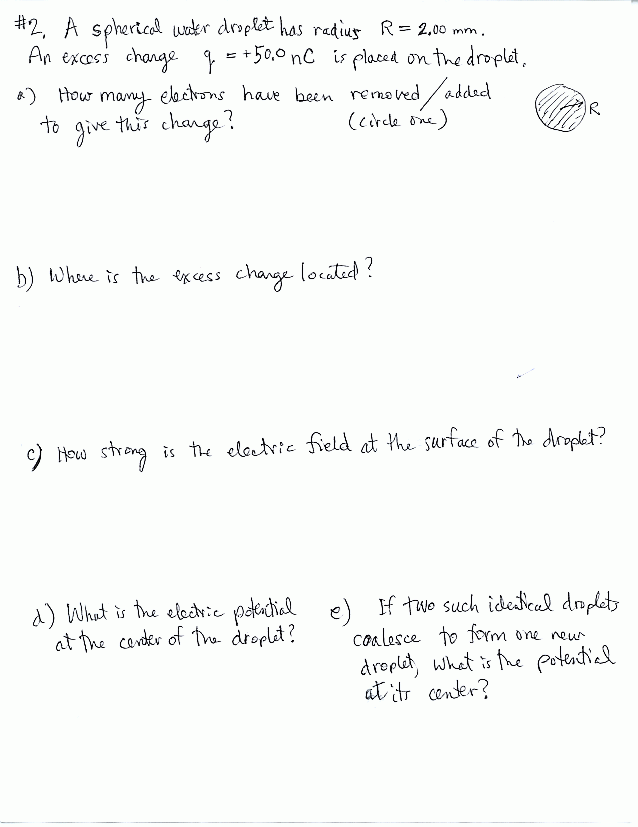 #2. A spherical water droplet has radius R = 2.00 mm.
An excess charge q = +50.0 nC is placed on the droplet.
a) How many electrons have been removed / added
to give this charge? (circle one)
R
b) Where is the excess charge located?
c) How strong is the electric field at the surface of the droplet?
d) What is the electric potential
at the center of the droplet?
e) If two such identical droplets
coalesce to form one new
droplet, what is the potential
at its center?